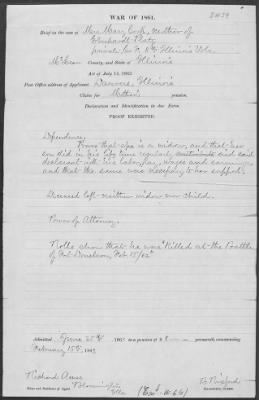 WAR OF 1861.
Brief in the case of Mrs Mary Cook, mother of
private Co. Illinois Vols.
McLean County, and State of Illinois
Act of July 14, 1862.
Post Office address of Applicant: Danvers, Illinois
Claim for Mother's pension.
Declaration and Identification in due Form.
PROOF EXHIBITED.
Dependence.
Prove that she is a widow, and that her
son did in his life time regularly and aid
declarant with his labor, pay, wages and earnings
and that the same were necessary to her support.
Deceased left neither widow nor child.
Power of Attorney.
Rolls show that he was "Killed at the Battle
of Fort Donelson, Feb 15/62"
Admitted June 25th, 1863 to a pension of $8 per month, commencing
February 15th, 1862
Richard
Name and Residence of Agent. Bloomington
Ills
Examining Clerk.